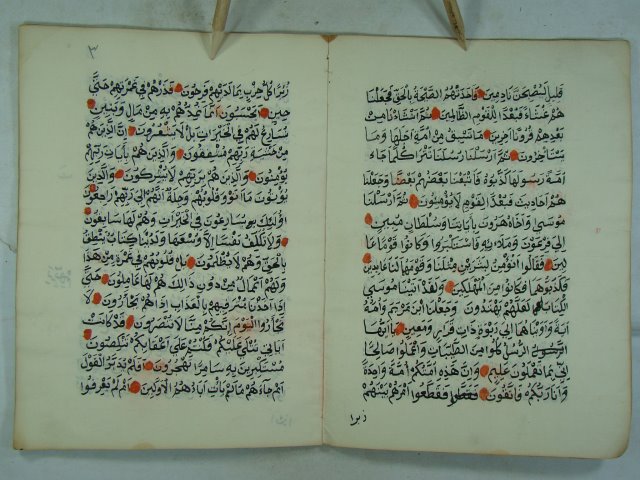 قليل ليصبحن نادمين فاخذتهم الصيحة بالحق فجعلنا
هم غثاء فبعدا للقوم الظالمين ثم انشاءنا من
بعدهم قرونا آخرين ما تسبق من امة اجلها وما
يستاخرون ثم ارسلنا رسلنا تترا كلما جاء
امة رسولها كذبوه فاتبعنا بعضهم بعضا وجعلنا
هم احاديث فبعدا لقوم لا يؤمنون ثم ارسلنا
موسى واخاه هرون باياتنا وسلطان مبين
الى فرعون وملائه فاستكبروا وكانوا قوما عا
لين فقالوا انؤمن لبشرين مثلنا وقومهما لنا عابدين
فكذبوهما فكانوا من المهلكين ولقد آتينا موسى
الكتاب لعلهم يهتدون وجعلنا ابن مريم وامه
آية وآويناهما الى ربوة ذات قرار ومعين يا ايها
الرسل كلوا من الطيبات واعملوا صالحا
اني بما تعملون عليم وان هذه امتكم امة واحدة
وانا ربكم فاتقون فتقطعوا امرهم بينهم
زبرا
٣
زبرا كل حزب بما لديهم فرحون فذرهم في غمرتهم حتى
حين ايحسبون انما نمدهم به من مال وبنين
نسارع لهم في الخيرات بل لا يشعرون ان الذين هم
من خشية ربهم مشفقون والذين هم بآيات ربهم
يؤمنون والذين هم بربهم لا يشركون والذين
يؤتون ما آتوا وقلوبهم وجلة انهم الى ربهم راجعون
اولئك يسارعون في الخيرات وهم لها سابقون
ولا نكلف نفسا الا وسعها ولدينا كتاب ينطق
بالحق وهم لا يظلمون بل قلوبهم في غمرة من هذا
ولهم اعمال من دون ذلك هم لها عاملون حتى
اذا اخذنا مترفيهم بالعذاب اذا هم يجأرون لا
تجأروا اليوم انكم منا لا تنصرون قد كانت
آياتي تتلى عليكم فكنتم على اعقابكم تنكصون
مستكبرين به سامرا تهجرون افلم يدبروا القول
ام جاءهم ما لم يأت آباءهم الاولين ام لم يعرفوا